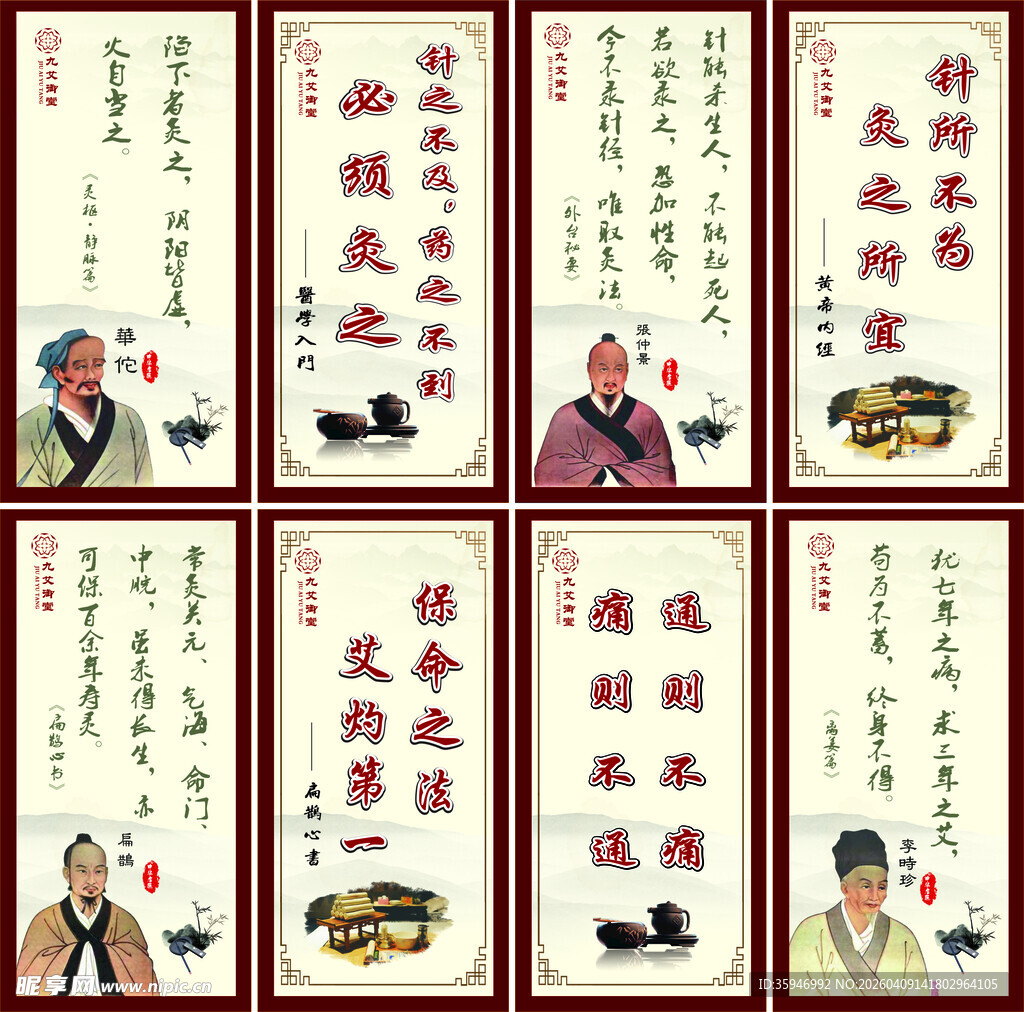 九艾御堂
JIU AI YU TANG
陷下者灸之，阴阳皆虚，
火自当之。
《灵枢·静脉篇》
華佗
九艾御堂
JIU AI YU TANG
针之不及，药之不到
必须灸之
——醫學入門
九艾御堂
JIU AI YU TANG
针能杀生人，不能起死人，
若欲录之，恐加性命，
今不录针径，唯取灸法。
《外台秘要》
張仲景
九艾御堂
JIU AI YU TANG
针所不为
灸之所宜
——黄帝内經
九艾御堂
JIU AI YU TANG
常灸关元、气海、命门、
中脘，虽未得长生，亦
可保百余年寿灵。
《扁鹊心书》
扁鵲
九艾御堂
JIU AI YU TANG
保命之法
艾灼第一
——扁鵲心書
九艾御堂
JIU AI YU TANG
通则不痛
痛则不通
九艾御堂
JIU AI YU TANG
犹七年之病，求三年之艾，
苟为不蓄，终身不得。
《离娄篇》
李時珍
昵享网 www.nipic.cn
ID:35946992 NO:20260409141802964105